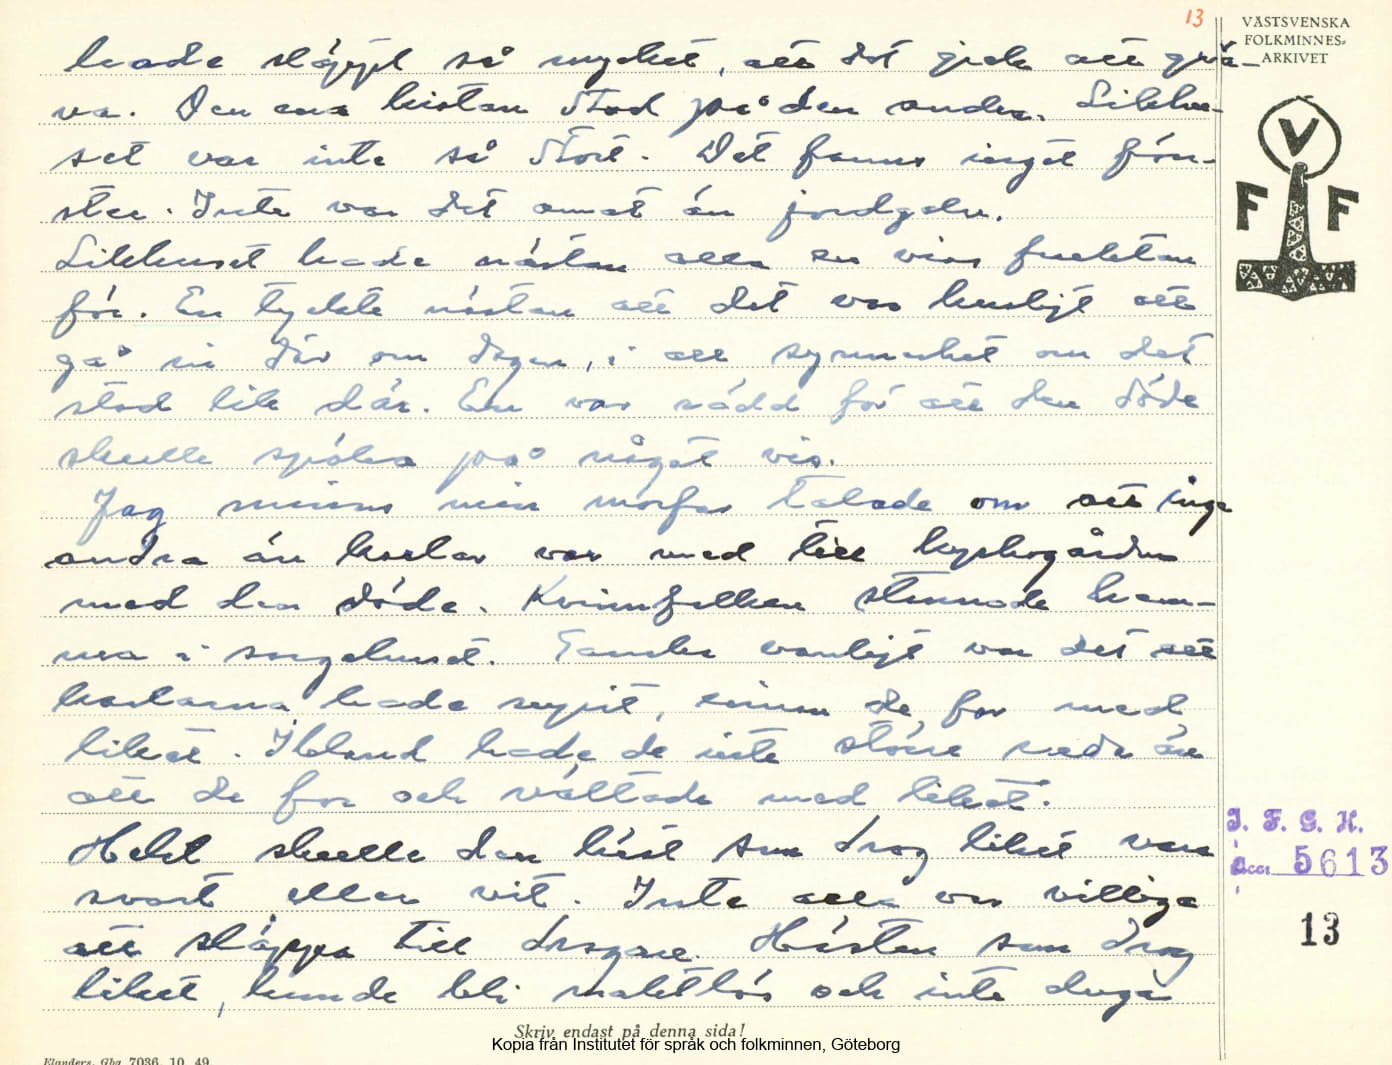 13
VÄSTSVENSKA
FOLKMINNES-
ARKIVET
V
F F
hade släppt så mycket, att det gick att grä-
va. Den ena kistan stod på den andra. Likhu-
set var inte så stort. Det fanns inget fön-
ster. Inte var det annat än jordgolv.
Likhuset hade nästan alla en viss fruktan
för. En tyckte nästan att det var kusligt att
gå in där om dagen, i all synnerhet om det
stod lik där. En var rädd för att den döde
skulle spöka på något vis.
Jag minns min morfar talade om att inga
andra än karlar var med till kyrkogården
med den döde. Kvinnfolken stannade hem-
ma i sorgehuset. Ganska vanligt var det att
karlarna hade supit, innan de for med
liket. Ibland hade de inte större reda än
att de for och vältade med liket.
Helst skulle den häst som drog liket vara
svart eller vit. Inte alla var villiga
att släppa till dragare. Hästen som drog
liket, kunde bli maktlös och inte duga
I. F. G. H.
Acc. 5613
13
Skriv endast på denna sida!
Kopia från Institutet för språk och folkminnen, Göteborg
Elanders, Gbg 7036. 10. 49.